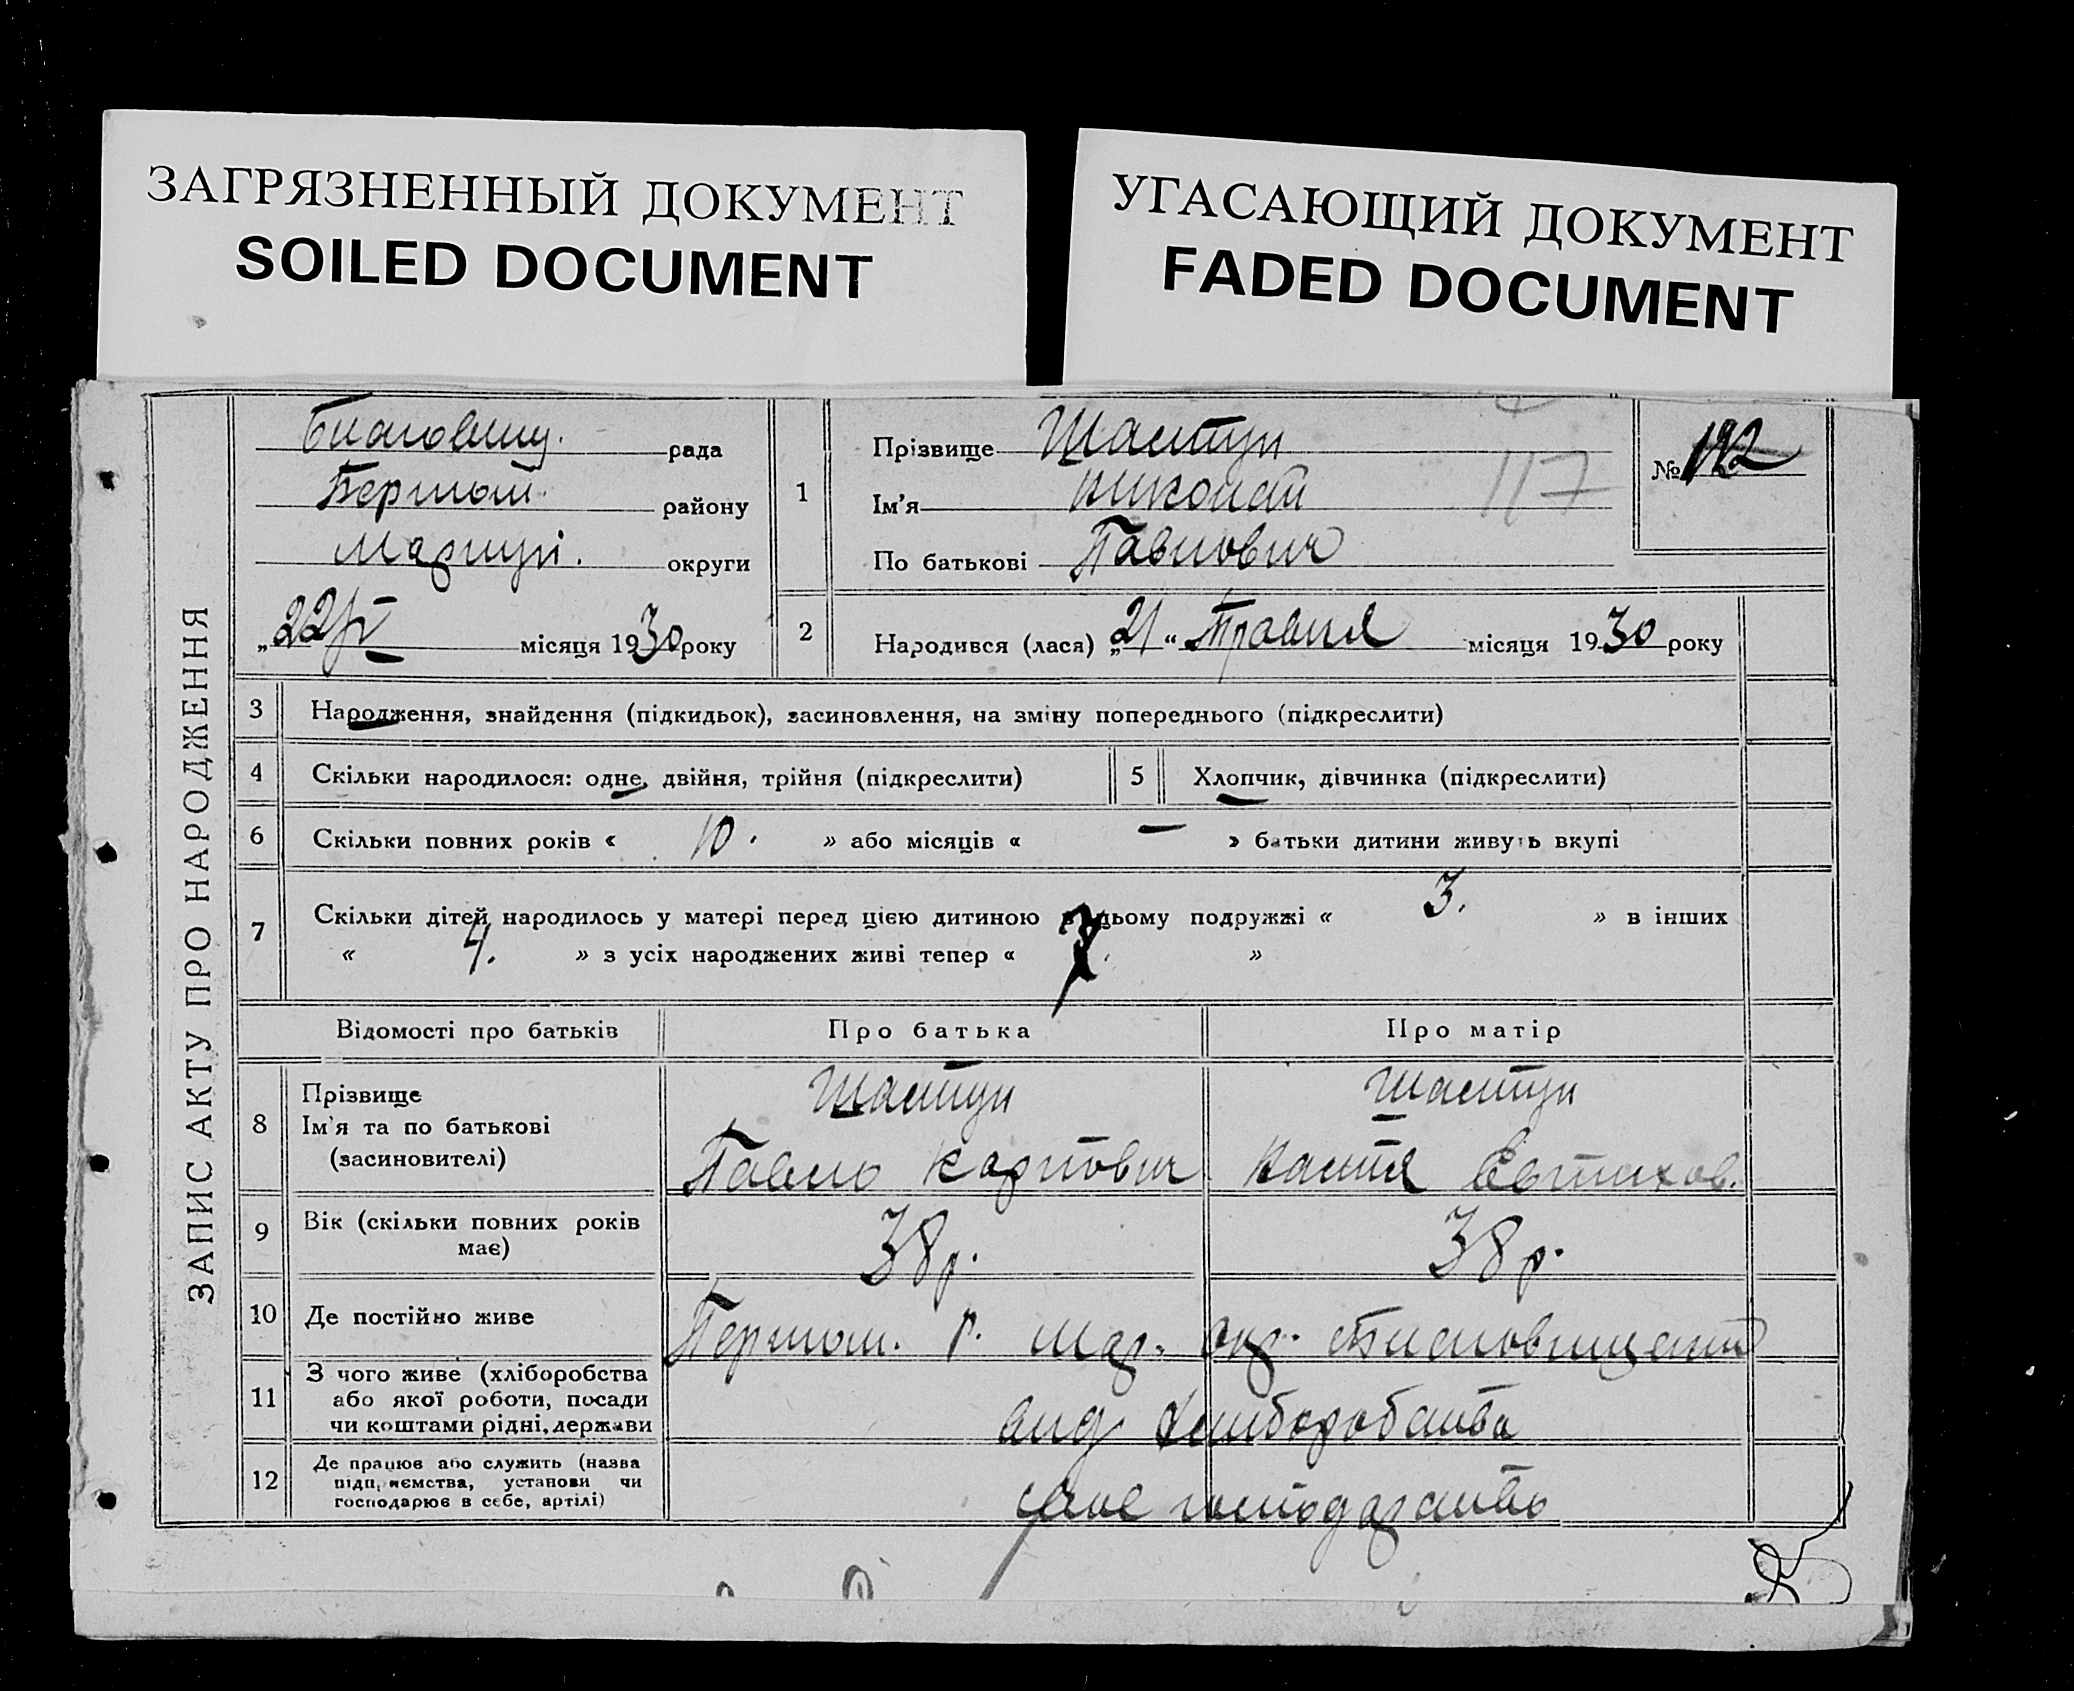 ЗАГРЯЗНЕННЫЙ ДОКУМЕНТ
SOILED DOCUMENT
УГАСАЮЩИЙ ДОКУМЕНТ
FADED DOCUMENT
ЗАПИС АКТУ ПРО НАРОДЖЕННЯ
рада
района
Маріупі. округи
„22/V місяця 1930 року
1 Прізвище Шастун
Ім'я Николай 117
По батькові Павлович
№ 122
2 Народився (лася) „21“ Травня місяця 1930 року
3 Народження, знайдення (підкидьок), засиновлення, на зміну попереднього (підкреслити)
4 Скільки народилося: одне, двійня, трійня (підкреслити) 5 Хлопчик, дівчинка (підкреслити)
6 Скільки повних років « 10. » або місяців « — » батьки дитини живуть вкупі
7 Скільки дітей народилось у матері перед цією дитиною в цьому подружжі « 3. » в інших
« 4. » з усіх народжених живі тепер « »
Відомості про батьків Про батька Про матір
8 Прізвище Шастун Шастун
Ім'я та по батькові
(засиновителі) Павло Карпович Євтихов.
9 Вік (скільки повних років має) 38 р. 38 р.
10 Де постійно живе р. Мар. окр.
11 З чого живе (хліборобства
або якої роботи, посади
чи коштами рідні, держави від хліборобства
12 Де працює або служить (назва
підприємства, установи чи
господарює в себе, артілі) господарство